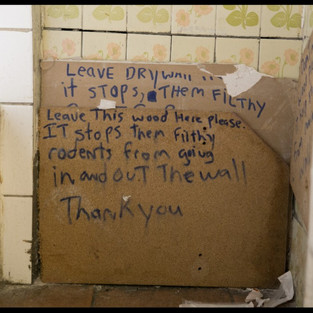 LEAVE DRYWALL
it STOPS, THEM FILTHY
Leave This wood Here please.
IT stops them filthy
rodents from going
in and out The wall
Thank you